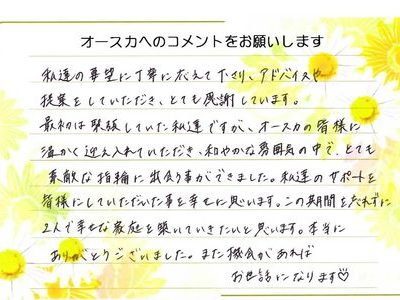 オースカへのコメントをお願いします
私達の要望に丁寧に応えて下さり、アドバイスや
提案をしていただき、とても感謝しています。
最初は緊張していた私達ですが、オースカの皆様に
温かく迎え入れていただき、和やかな雰囲気の中で、とても
素敵な指輪に出会う事ができました。私達のサポートを
皆様にしていただいた事を幸せに思います。この期間を忘れずに
2人で幸せな家庭を築いていきたいと思います。本当に
ありがとうございました。また機会があれば
お世話になります♡